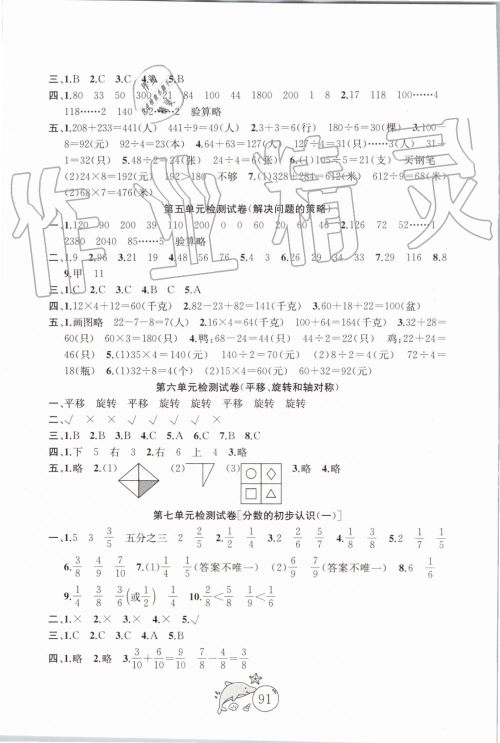 三、1.B 2.C 3.C 4.A 5.B
四、1.80 33 50 300 21 84 100 44 1800 200 1 8 2.17 118 100……4
118……2 140 92……2 验算略
五、1.208+233=441(人) 441÷9=49(人) 2.3+3=6(行) 180÷6=30(棵) 3.100-
8=92(元) 92÷23=4(本) 4.64+63=127(人) 127÷4=31(只)……3(人) 31+
1=32(只) 5.48÷2=24(张) 24÷4=6(张) 6.(1)105÷5=21(支) 买钢笔
(2)24×8=192(元) 192>180 不够 7.(1)328+281=612(米) 612÷9=68(米)
(2)68×7=476(米)
第五单元检测试卷(解决问题的策略)
一、1.120 90 200 39 110 200 0 0 60 20 60 46 2.126 52……1
2380 2040 85……5 验算略
二、1.9 2.96 3.21 19 4.48 56 76 5.4 3 6.33 54 7.29 116 8.8
9.甲 11
三、1.C 2.C 3.C 4.B 5.C 5.A
四、1.12×4+12=60(千克) 2.82-23+82=141(千克) 3.60+18+22=100(盆)
五、1.画图略 22-7-8=7(人) 2.16×4=64(千克) 100+64=164(千克) 3.32+28=
60(只) 60×3=180(只) 4.鸭:68-24=44(只) 44÷2=22(只) 鸡:22+24=
46(只) 5.(1)35×4=140(元) 140÷2=70(元) (2)8÷2=4(元) 72÷4=
18(瓶) 6.(1)12÷3=4(个) (2)15×4=60(元) 60+32=92(元)
第六单元检测试卷(平移、旋转和轴对称)
一、平移 旋转 平移 旋转 旋转 平移 旋转 平移
二、√ × × √ √ √ √ √
三、1.B 2.B 3.B 4.C 5.A 6.C 7.B 8.C
四、1.下 5 右 3 2.右 6 上 4 3.略
五、1.略 2.(1) (2) (3) 3.略 4.略
第七单元检测试卷[分数的初步认识(一)]
一、1.5 3 3/5 五分之三 2 2/5 2.1/2 1/4 3.2 2/6 5/7 4.1/8 3/8 5.2 1/7 1/5
6.3/8 4/9 7/10 7.(1)1/4 1/5(答案不唯一) (2)6/9 7/9(答案不唯一) 8.6 1/6
9.1/4 3/8 3/6(或1/2) 1/4 10.2/8<5/8 1/9<1/6
二、1.× 2.× 3.× 4.× 5.√
三、1.C 2.C 3.C 4.A 5.B
四、1.略 2.略 3.3/10+6/10=9/10 7/8-4/8=3/8
91
作业精灵